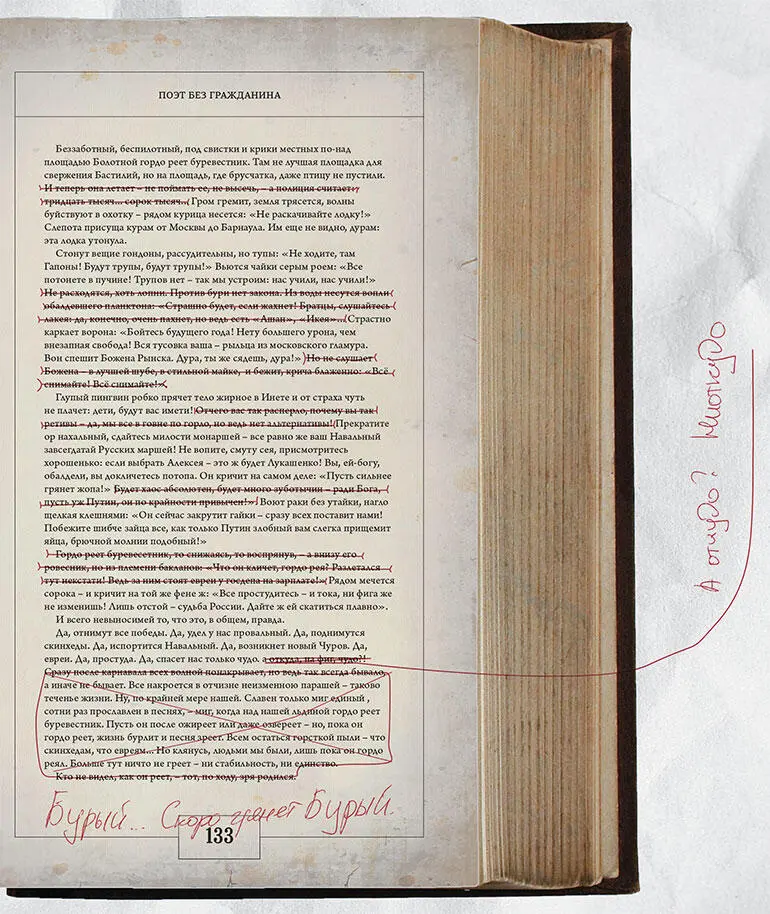 ПОЭТ БЕЗ ГРАЖДАНИНА
Беззаботный, беспилотный, под свистки и крики местных по-над
площадью Болотной гордо реет буревестник. Там не лучшая площадка для
свержения Бастилий, но на площадь, где брусчатка, даже птицу не пустили.
И теперь она летает – не поймать ее, не высечь, – а полиция считает:
тридцать тысяч... сорок тысяч... Гром гремит, земля трясется, волны
буйствуют в охотку – рядом курица несется: «Не раскачивайте лодку!»
Слепота присуща курам от Москвы до Барнаула. Им еще не видно, дурам:
эта лодка утонула.
Стонут вещие гондоны, рассудительны, но тупы: «Не ходите, там
Гапоны! Будут трупы, будут трупы!» Вьются чайки серым роем: «Все
потонете в пучине! Трупов нет – так мы устроим: нас учили, нас учили!»
Не расходятся, хоть лопни. Против бури нет закона. Из воды несутся вопли
обалдевшего планктона: «Страшно будет, если жахнет! Братцы, слушайтесь
лакея: да, конечно, очень пахнет, но ведь есть «Ашан», «Икея»... Страстно
каркает ворона: «Бойтесь будущего года! Нету большего урона, чем
внезапная свобода! Вся тусовка ваша – рыльца из московского гламура.
Вон спешит Божена Рынска. Дура, ты же сядешь, дура!» Но не слушает
Божена – в лучшей шубе, в стильной майке, и бежит, крича блаженно: «Всё
снимайте! Всё снимайте!»
Глупый пингвин робко прячет тело жирное в Инете и от страха чуть
не плачет: дети, будут вас имети! Отчего вас так расперло, почему вы так
ретивы – да, мы все в говне по горло, но ведь нет альтернативы! Прекратите
ор нахальный, сдайтесь милости монаршей – все равно же ваш Навальный
завсегдатай Русских маршей! Не вопите, смуту сея, присмотритесь
хорошенько: если выбрать Алексея – это ж будет Лукашенко! Вы, ей-богу,
обалдели, вы докличетесь потопа. Он кричит на самом деле: «Пусть сильнее
грянет жопа!» Будет хаос абсолютен, будет много зуботычин – ради Бога,
пусть уж Путин, он по крайности привычен!» Воют раки без утайки, нагло
щелкая клешнями: «Он сейчас закрутит гайки – сразу всех поставит нами!
Побежите шибче зайца все, как только Путин злобный вам слегка прищемит
яйца, брючной молнии подобный!»
Гордо реет буревестник, то снижаясь, то воспрянув, – а внизу его
ровесник, но из племени бакланов: «Что он кличет, гордо рея? Разлетался
тут некстати! Ведь за ним стоят евреи у госдепа на зарплате!» Рядом мечется
сорока – и кричит на той же фене ж: «Все простудитесь – и тока, ни фига же
не изменишь! Лишь отстой – судьба России. Дайте ж ей скатиться плавно».
И всего невыносимей то, что это, в общем, правда.
Да, отнимут все победы. Да, удел у нас провальный. Да, поднимутся
скинхеды. Да, испортится Навальный. Да, возникнет новый Чуров. Да,
евреи. Да, простуда. Да, спасет нас только чудо. а откуда, на фиг, чудо?!
Сразу после карнавала всех волной понакрывает, но ведь так всегда бывало,
а иначе не бывает. Все накроется в отчизне неизменною парашей – таково
теченье жизни. Ну, по крайней мере нашей. Славен только миг единый ,
сотни раз прославлен в песнях, – миг, когда над нашей льдиной гордо реет
буревестник. Пусть он после ожиреет или даже озвереет – но, пока он
гордо реет, жизнь бурлит и песня зреет. Всем остаться горсткой пыли – что
скинхедам, что евреям... Но клянусь, людьми мы были, лишь пока он гордо
реял. Больше тут ничто не греет – ни стабильность, ни единство.
Кто не видел, как он реет, – тот, по ходу, зря родился.
Бурый... Скоро грянет Бурый.
133
А откудо? Ниоткудо